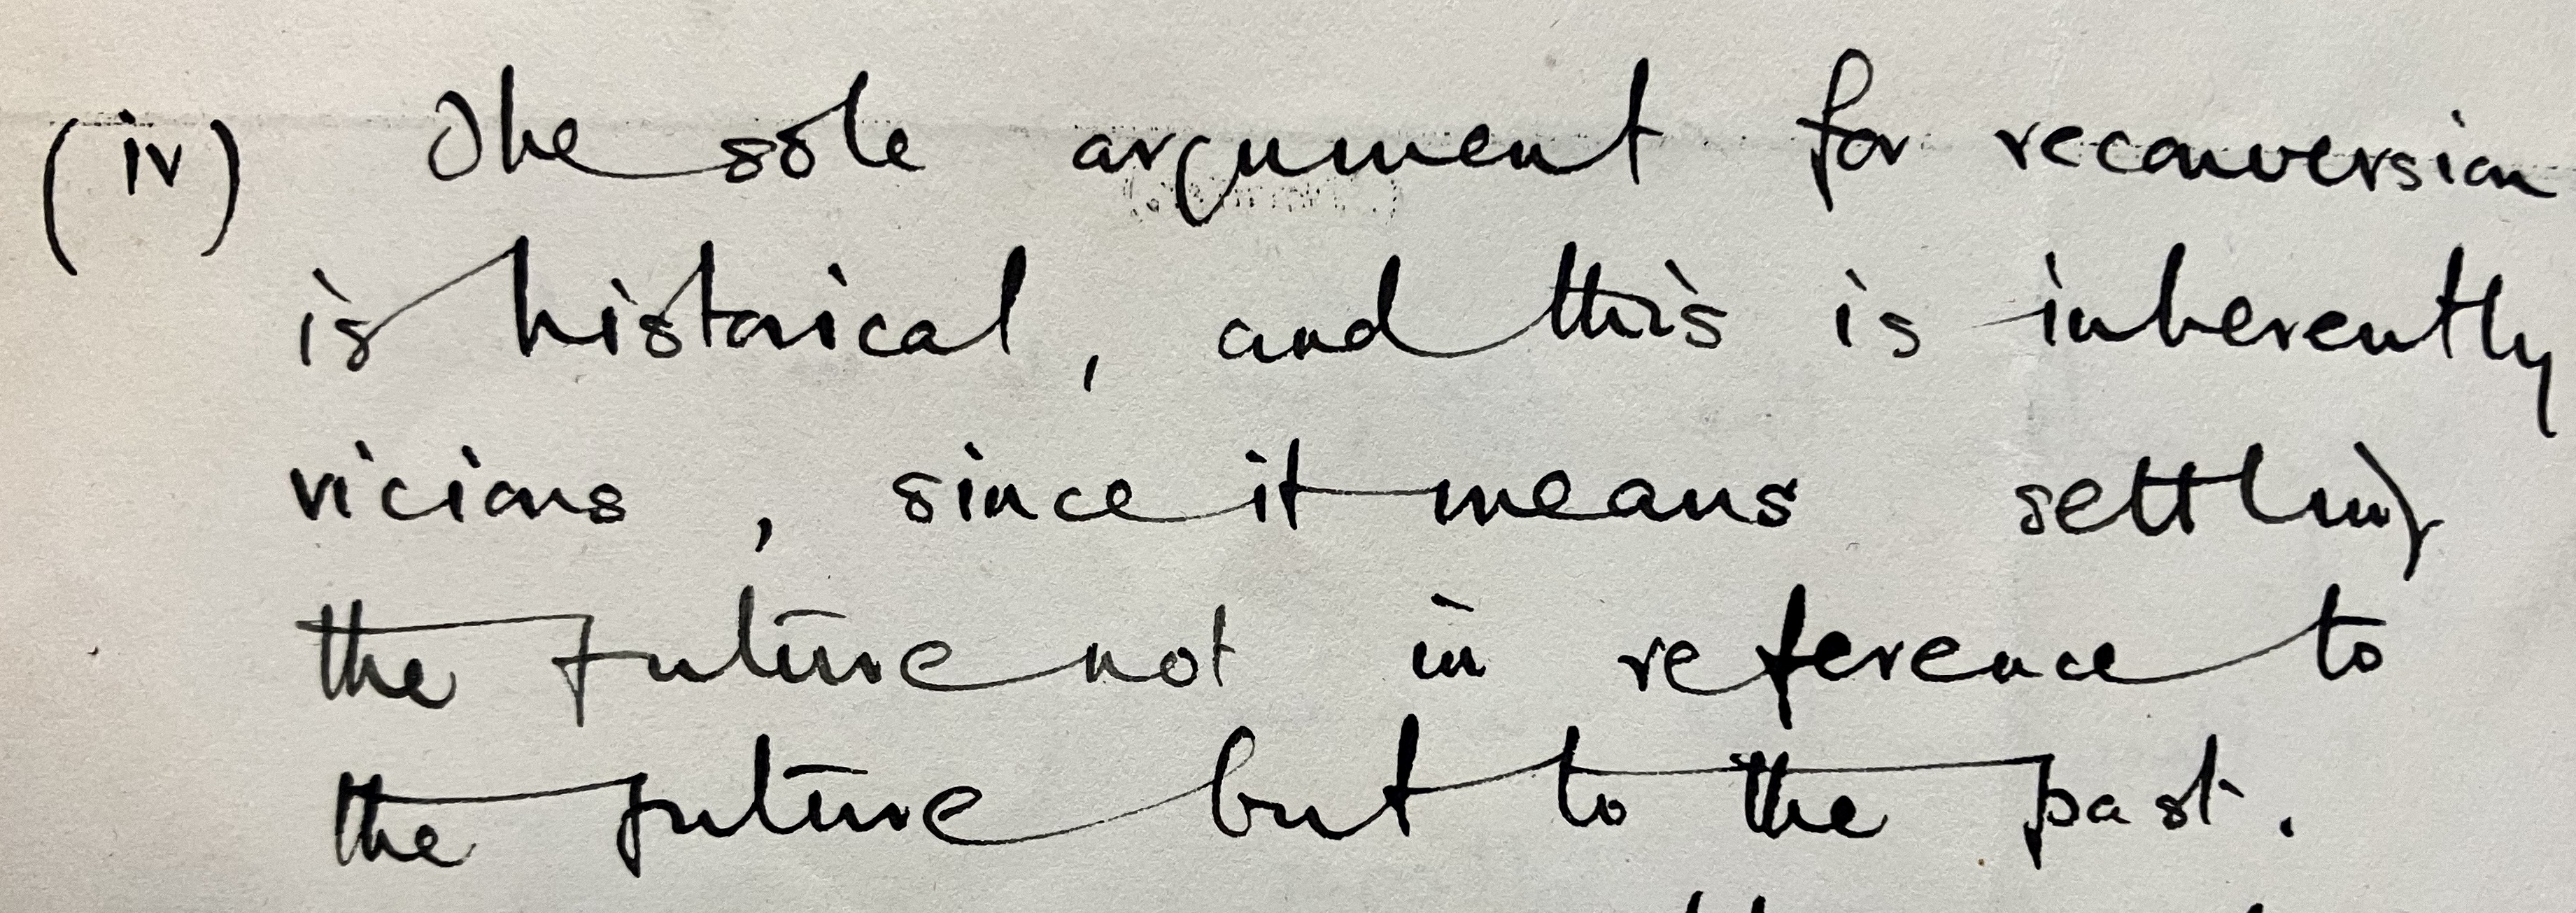 (iv) The sole argument for reconversion
is historical, and this is inherently
vicious, since it means settling
the future not in reference to
the future but to the past.